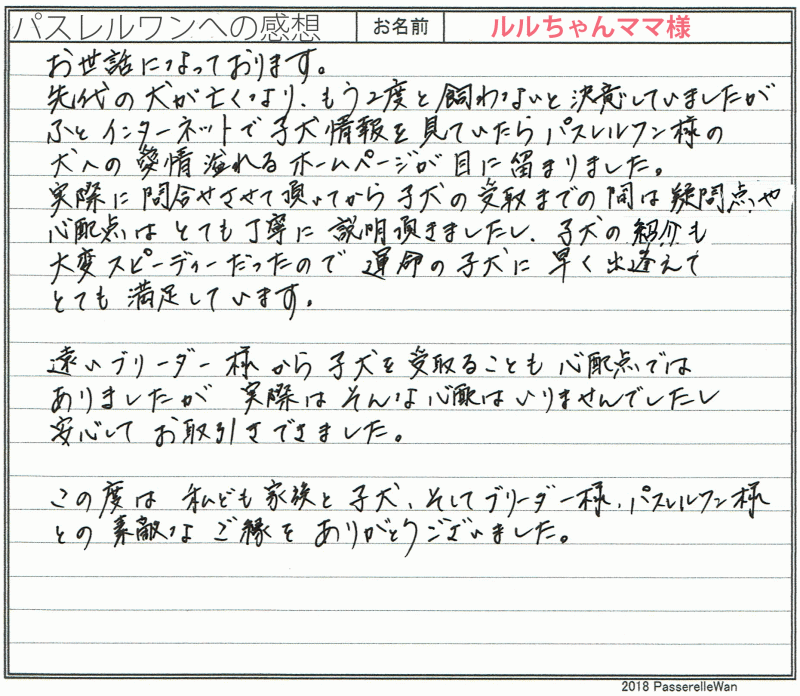 パスレルワンへの感想 お名前 ルルちゃんママ様
お世話になっております。
先代の犬が亡くなり、もう2度と飼わないと決意していましたが
ふとインターネットで子犬情報を見ていたらパスレルワン様の
犬への愛情溢れるホームページが目に留まりました。
実際に問合せさせて頂いてから子犬の受取までの間は疑問点や
心配点はとても丁寧に説明頂きましたし、子犬の紹介も
大変スピーディーだったので運命の子犬に早く出逢えて
とても満足しています。
遠いブリーダー様から子犬を受取ることも心配点では
ありましたが実際はそんな心配はいりませんでしたし
安心してお取引きできました。
この度は私ども家族と子犬、そしてブリーダー様、パスレルワン様
との素敵なご縁をありがとうございました。
2018 PasserelleWan